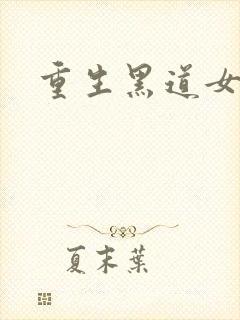 重生黑道女
夏末葉